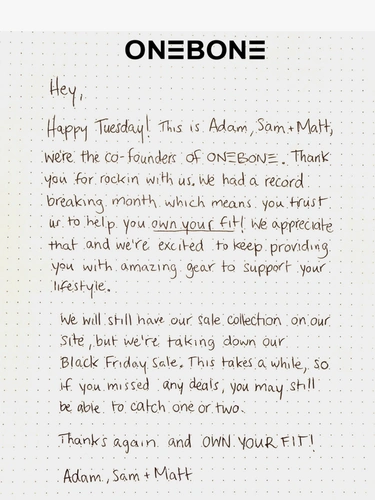 ONEBONE
Hey,
Happy Tuesday! This is Adam, Sam + Matt,
we're the co-founders of ONEBONE. Thank
you for rockin with us. We had a record
breaking month which means you trust
us to help you own your fit! We appreciate
that and we're excited to keep providing
you with amazing gear to support your
lifestyle.
We will still have our sale collection on our
site, but we're taking down our
Black Friday Sale. This takes a while, so
if you missed any deals, you may still
be able to catch one or two.
Thanks again and OWN YOUR FIT!
Adam, Sam + Matt